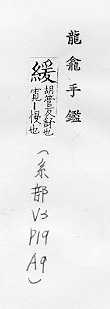 龍龕手鑑
緩
胡管反舒也
寛一慢也
(糸部
V3
P19
A9)